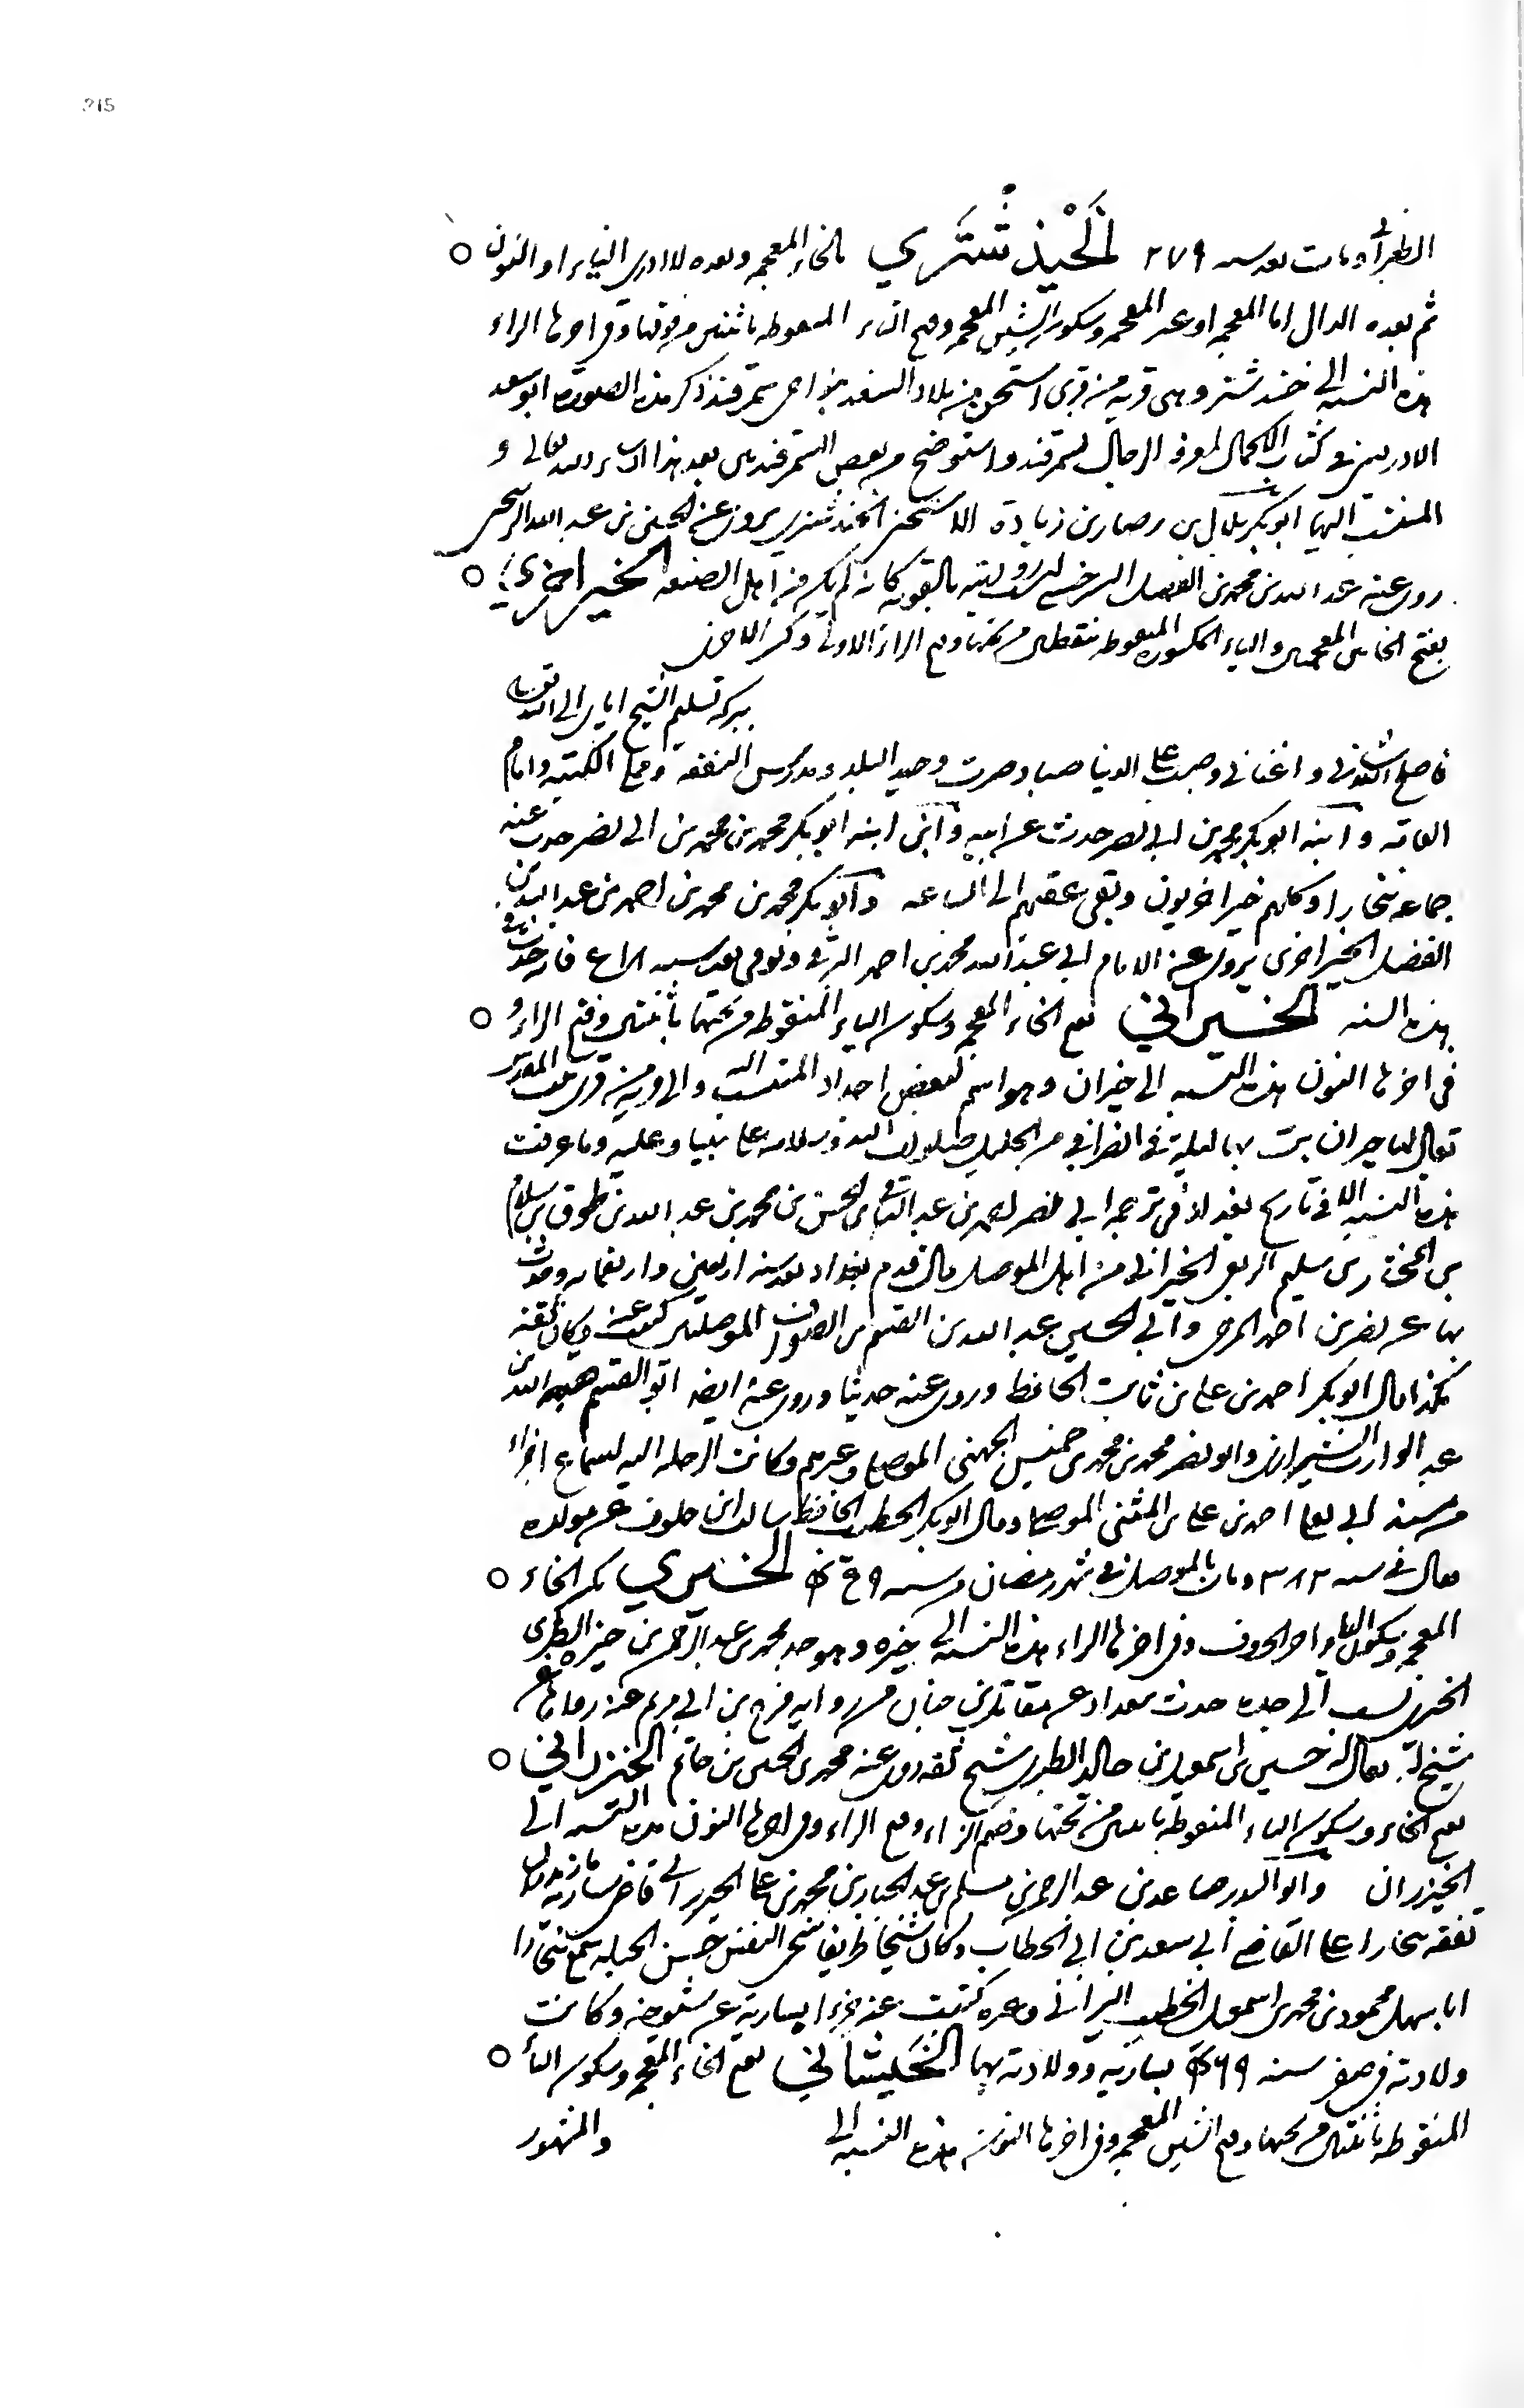 215
الطبراني ومات بعد سنه ٢٧٩ الخَيْذَشْتَري بالخاء المعجمه وبعده لا ادرى الياء او النون
ثم بعده الدال اما المعجمه او غير المعجمه وسكون الشين المعجمه وفتح التاء المنقوطه باثنتين من فوقها وفى اخرها الراء
هذه النسبه الى خنذشتر وهى قريه من قرى اشتيخن من بلاد السغد بنواحى سمرقند ذكر هذه الصوره ابو سعد
الادريسى فى كتاب الاكمال لمعرفه الرجال بسمرقند واستوضح من بعض السمرقنديين بعد هذا ان شاء الله تعالى و
المنتسب اليها ابو بكر بلال بن رميار بن زيادة الاشتيخنى الخنذشترى يروى عن الحسين بن عبد الله البرسخى
روى عنه عبد الله بن محمد بن الفضل السرخسى ليست روايته بالقويه كانه لم يكن من اهل الصنعه الخيراخري
بفتح الخائين المعجمتين والياء المكسوره المنقوطه بنقطتين من تحتها وفتح الراء الاولى وكسر الاخرى
ببركه تسليم الشيخ اياى الى الله تعالى
فاصلح الله شانى واغنانى وصبت على الدنيا صبا وصرت وحيد البلد ومدرس المتفقه ومملى الكتبه وامام
العامه وابنه ابو بكر محمد بن ابى نصر حدث عن ابيه وابن ابنه ابو بكر محمد بن محمد بن ابى نصر حدث عنه
جماعه ببخارا وكلهم خيراخريون وبقى عقبهم الى الساعه وابو بكر محمد بن محمد بن احمد بن عبد الله بن
الفضل الخيراخرى يروى عن الامام ابى عبد الله محمد بن احمد البرقى وتوفى بعد سنه فانه حدث فى
هذه السنه الخيراني بفتح الخاء المعجمه وسكون الياء المنقوطه من تحتها باثنتين وفتح الراء و
فى اخرها النون هذه النسبه الى خيران وهو اسم لبعض اجداد المنتسب اليه والى قريه من قرى بيت المقدس
يقال لها خيران بت بها ليله فى انصرافى من الخليل صلوات الله وسلامه على نبينا وعليه وما عرفت
هذه النسبه الا فى تاريخ بغداد فى ترجمه ابى نصر احمد بن عبد الباقى بن الحسن بن محمد بن عبد الله بن طوق بن سلام
بن المختار بن سليم الربعى الخيرانى من اهل الموصل قال قدم بغداد بعد سنه اربعين واربعمايه وحدث
بها عن نصر بن احمد المرجى وابى الحسين عبد الله بن القسم بن الصواف الموصليين كتبت عنه وكان ثقه
هكذا قال ابو بكر احمد بن على بن ثابت الحافظ وروى عنه حديثا وروى عنه ايضا ابو القسم هبه الله بن
عبد الوارث الشيرازى وابو نصر محمد بن محمد بن خميس الجهنى الموصلى وغيرهم وكانت الرحله اليه لسماع اجزاء
من مسند ابى يعلى احمد بن على بن المثنى الموصلى وقال ابو بكر الخطيب الحافظ سالت ابن طوق عن مولده
فقال فى سنه ٣٨٢ ومات بالموصل فى شهر رمضان من سنه ٤٥٩ الخيري بكسر الخاء
المعجمه وسكون الياء اخر الحروف وفى اخرها الراء هذه النسبه الى خيره وهو جد محمد بن عبد الرحمن بن خيره الطبرى
الخيرى نسب الى جده حدث ببغداد عن مقاتل بن حيان من روايه فرج بن ابى مريم عنه رواها عن
شيخ له يقال له حسين بن اسمعيل بن خالد الطبرى شيخ ثقه روى عنه محمد بن الحسن بن حاتم الخيزراني
بفتح الخاء وسكون الياء المنقوطه باثنتين من تحتها وضم الزاء وفتح الراء وفى اخرها النون هذه النسبه الى
الخيزران وابو البدر صاعد بن عبد الرحمن بن مسلم بن عبد الجبار بن محمد بن على الخيزرانى قاضى ساريه مازندران
تفقه ببخارا على القاضى ابى سعد بن ابى الخطاب وكان شيخا ظريفا سخى النفس حسن الجمله سمع ببخارا
ابا سهل محمود بن محمد بن اسمعيل الخطيب البرانى وغيره كتبت عنه جزءا بساريه عن شيوخه وكانت
ولادته فى صفر سنه ٤٦٩ بساريه وولادته بها الخَيْشاني بفتح الخاء المعجمه وسكون الياء
المنقوطه باثنتين من تحتها وفتح الشين المعجمه وفى اخرها النون هذه النسبه الى والمشهور